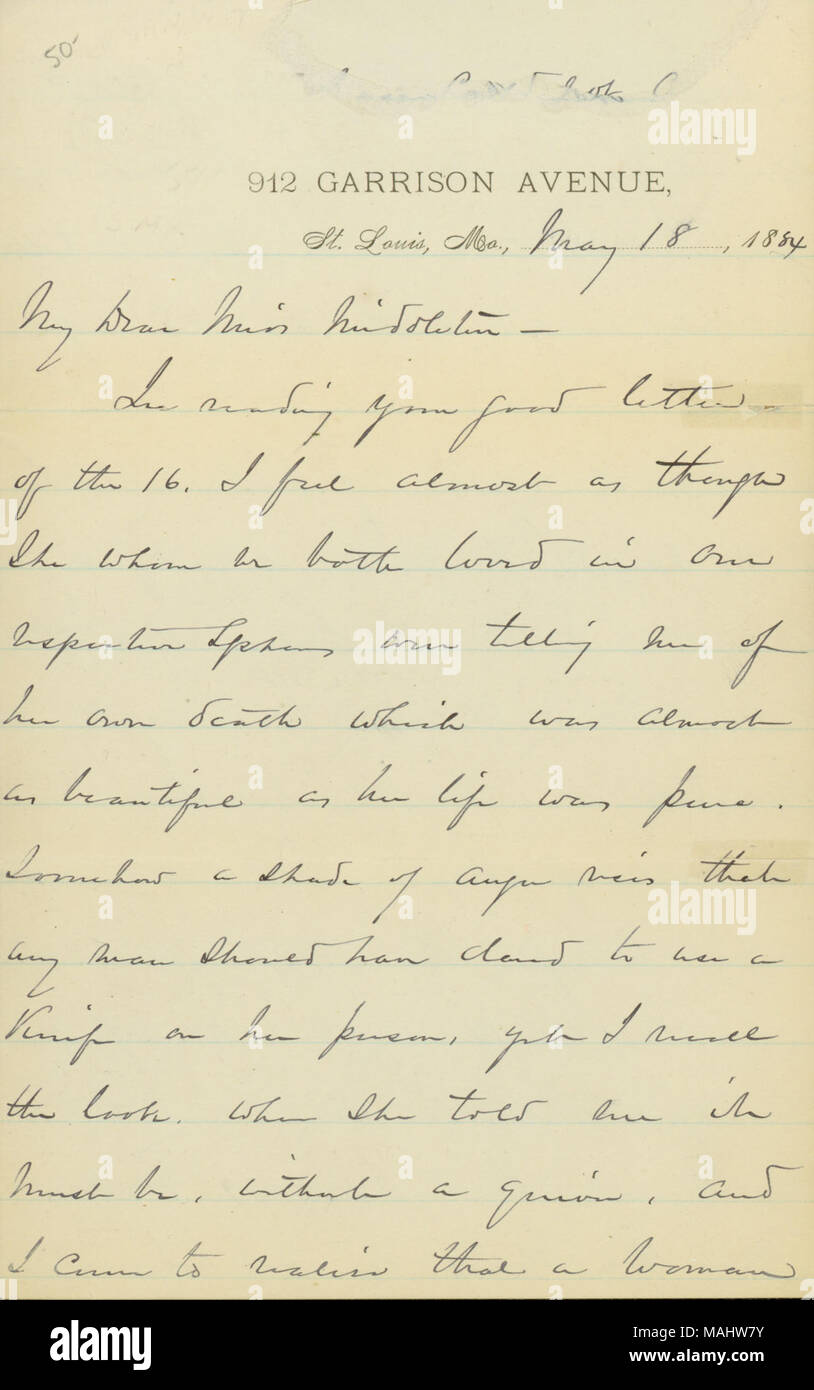 50
912 GARRISON AVENUE,
St. Louis, Mo., May 18, 1884
My Dear Miss Middleton —
In reading your good letter
of the 16. I feel almost as though
She whom we both loved in our
respective Spheres were telling me of
her own death which was almost
as beautiful as her life was pure.
Somehow a shade of anger rises that
any man should have dared to use a
Knife on her person, yet I recall
the look. when She told me it
must be, without a quiver, and
I came to realise that a Woman
alamy
Image ID: MAHW7Y
www.alamy.com